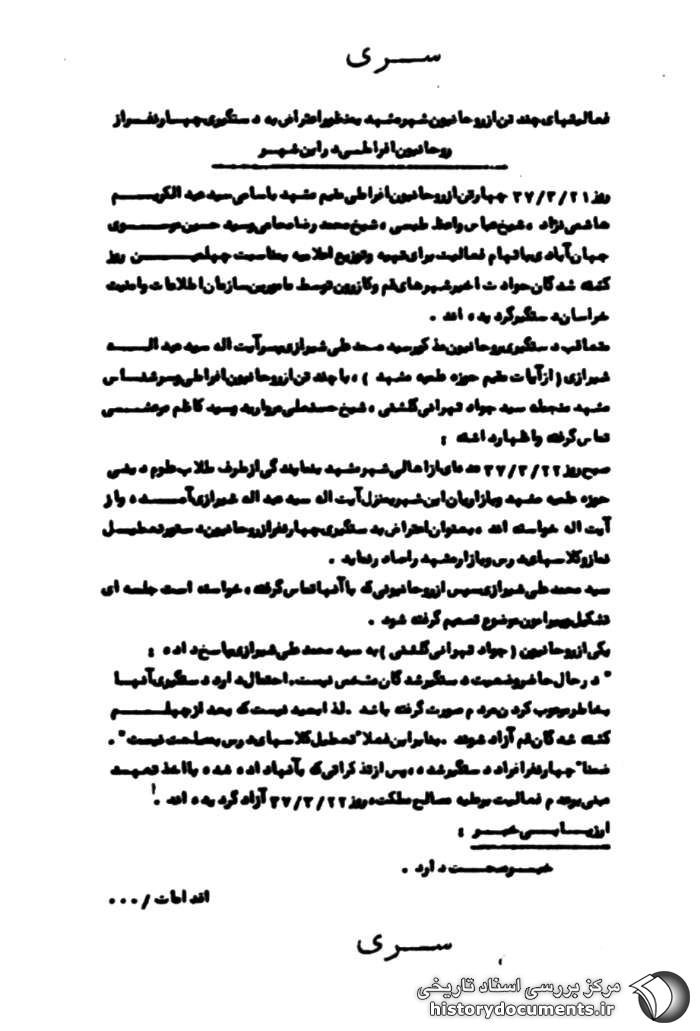 سری
فعالیتهای چند تن از روحانیون شهر مشهد بمنظور اعتراض به دستگیری چهار نفر از
روحانیون افراطی در این شهر
روز ۳۷/۳/۲۱ چهار تن از روحانیون افراطی مقیم مشهد باسامی سید عبد الکریم
هاشمی نژاد ، شیخ عباس واعظ طبسی ، شیخ محمد رضا محامی وسید حسین موسوی
جهان آبادی باتهام فعالیت برای تهیه وتوزیع اعلامیه بمناسبت چهلمین روز
کشته شدگان حوادث اخیر شهرهای قم وکازرون توسط مامورین سازمان اطلاعات وامنیت
خراسان دستگیر گردیده اند .
متعاقب دستگیری روحانیون مذکور سید محمد علی شیرازی پسر آیت اله سید عبد اله
شیرازی ( از آیات مقیم حوزه علمیه مشهد ) ، با چند تن از روحانیون افراطی وسرشناس
مشهد منجمله سید جواد تهرانی گلشنی ، شیخ حسنعلی مروارید وسید کاظم مرعشی
تماس گرفته واظهار داشته :
صبح روز ۳۷/۳/۲۲ عده ای از اهالی شهر مشهد بنمایندگی از طرف طلاب علوم دینی
حوزه علمیه مشهد وبازاریان این شهر بمنزل آیت اله سید عبد اله شیرازی آمده و از
آیت اله خواسته اند ، بعنوان اعتراض به دستگیری چهار نفر از روحانیون دستور تعطیل
نماز وکلاسهای درس وبازار مشهد را صادر نماید .
سید محمد علی شیرازی سپس از روحانیونی که با آنها تماس گرفته ، خواسته است جلسه ای
تشکیل وپیرامون موضوع تصمیم گرفته شود .
یکی از روحانیون ( جواد تهرانی گلشنی ) به سید محمد علی شیرازی پاسخ داده :
" در حال حاضر وضعیت دستگیر شدگان مشخص نیست، احتمال دارد دستگیری آنها
بخاطر مرعوب کردن مردم صورت گرفته باشد . لذا بعید نیست که بعد از چهلم
کشته شدگان قم آزاد شوند . بنابراین فعلا" تعطیل کلاسهای درس بصلاحت نیست" .
ضمنا" چهار نفر افراد دستگیر شده ، پس از تذکراتی که بآنها داده شده با اخذ تعهد
مبنی بر عدم فعالیت برعلیه مصالح مملکت، روز ۳۷/۳/۲۲ آزاد گردیده اند .
ارزیابی خبر :
خبر صحت دارد .
اقدامات / ۰۰۰
سری
مرکز بررسی اسناد تاریخی
historydocuments.ir